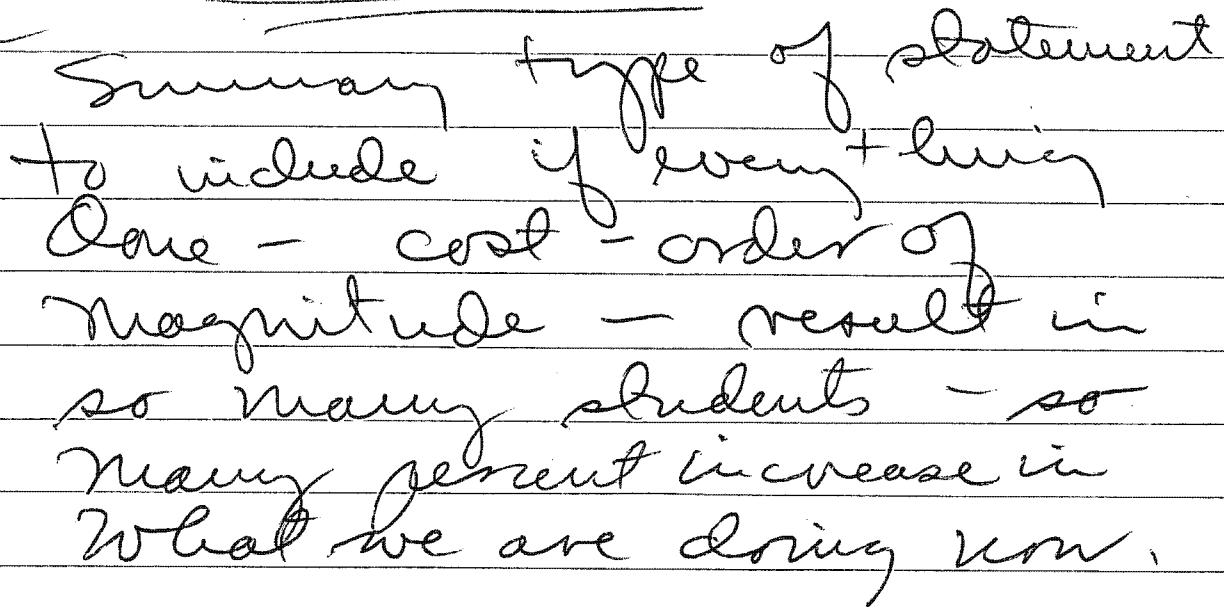 Summary type of statement
to include if everything
Done - cost - order of
magnitude - result in
so many students - so
many percent increase in
What we are doing now.